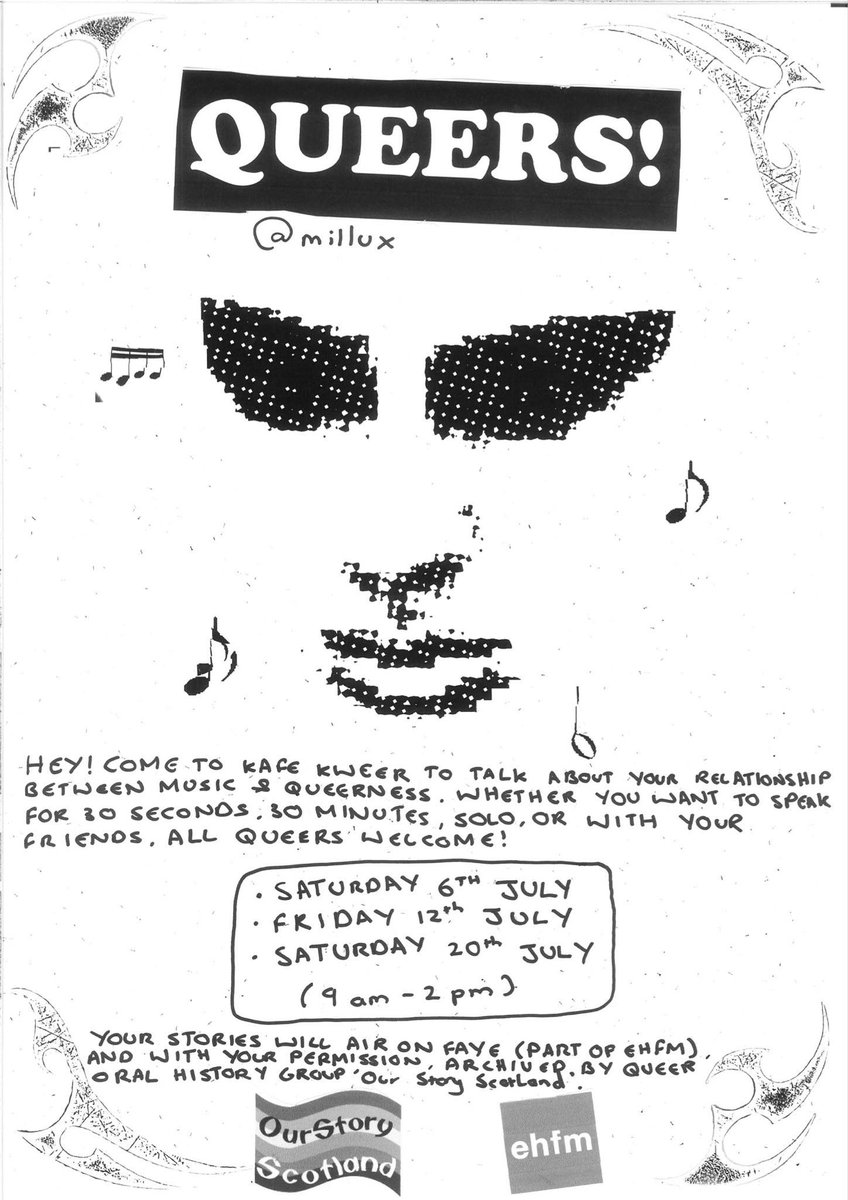 QUEERS!
@millux
HEY! COME TO KAFE KWEER TO TALK ABOUT YOUR RELATIONSHIP
BETWEEN MUSIC & QUEERNESS. WHETHER YOU WANT TO SPEAK
FOR 30 SECONDS, 30 MINUTES, SOLO, OR WITH YOUR
FRIENDS. ALL QUEERS WELCOME!
• SATURDAY 6TH JULY
• FRIDAY 12th JULY
• SATURDAY 20th JULY
(9 am - 2 pm)
YOUR STORIES WILL AIR ON FAYE (PART OF EHFM),
AND WITH YOUR PERMISSION, ARCHIVED BY QUEER
ORAL HISTORY GROUP 'Our Story Scotland.
OurStory
Scotland
ehfm